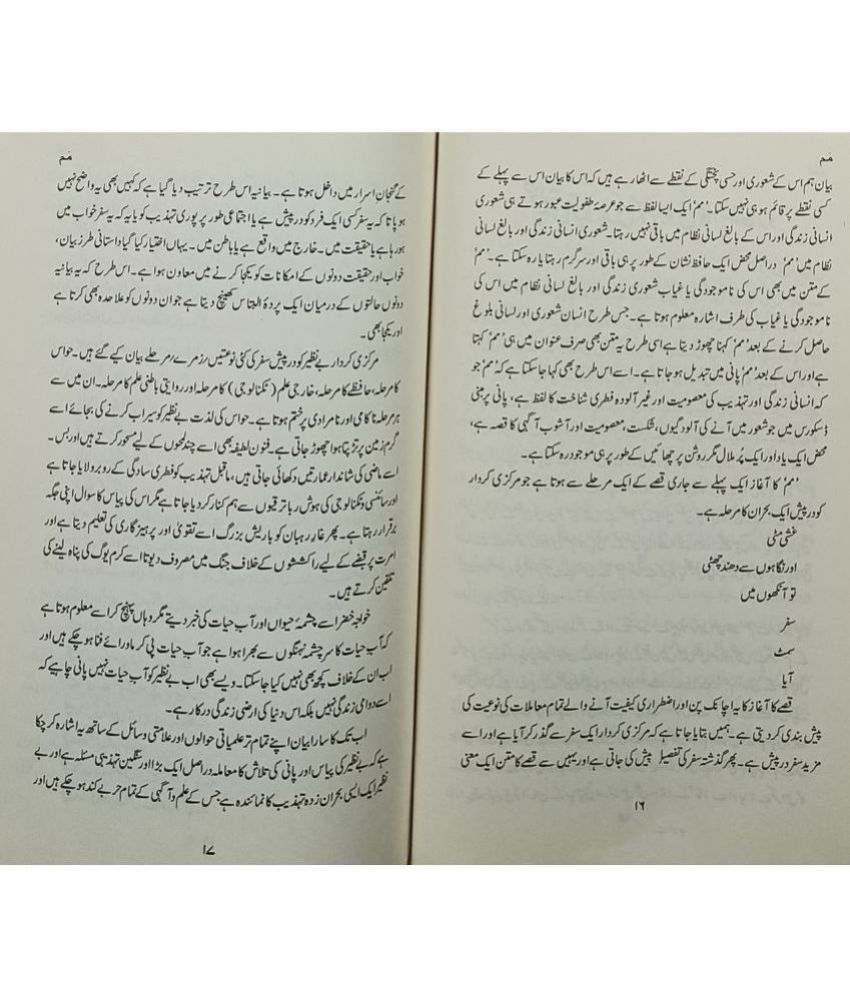 مَم
بیان ہم اس کے شعوری اور حسی پختگی کے نقطے سے اٹھا رہے ہیں کہ اس کا بیان اس سے پہلے کے
کسی نقطے پر قائم ہو ہی نہیں سکتا۔ ’مم‘ ایک ایسا لفظ ہے جو عرصۂ طفولیت عبور ہوتے ہی شعوری
انسانی زندگی اور اس کے بالغ لسانی نظام میں باقی نہیں رہتا۔ شعوری انسانی زندگی اور بالغ لسانی
نظام میں ’مم‘ دراصل محض ایک حافظ نشان کے طور پر ہی باقی اور سرگرم رہتا یا رہ سکتا ہے۔ ’مم‘
کے متن میں بھی اس کی ناموجودگی یا غیاب شعوری زندگی اور بالغ لسانی نظام میں اس کی
ناموجودگی یا غیاب کی طرف اشارہ معلوم ہوتا ہے۔ جس طرح انسان شعوری اور لسانی بلوغ
حاصل کرنے کے بعد ’مم‘ کہنا چھوڑ دیتا ہے اسی طرح یہ متن بھی صرف عنوان میں ہی ’مم‘ کہتا
ہے اور اس کے بعد ’مم‘ پانی میں تبدیل ہو جاتا ہے۔ اسے اس طرح بھی کہا جا سکتا ہے کہ ’مم‘ جو
کہ انسانی زندگی اور تہذیب کی معصومیت اور غیر آلودہ فطری شناخت کا لفظ ہے، پانی پر مبنی
ڈسکورس میں جو شعور میں آنے کی آلودگیوں، شکست، معصومیت اور آشوب آگہی کا قصہ ہے،
محض ایک یاد اور ایک پُر ملال مگر روشن پرچھائیں کے طور پر ہی موجود رہ سکتا ہے۔
’مم‘ کا آغاز ایک پہلے سے جاری قصے کے ایک مرحلے سے ہوتا ہے جو مرکزی کردار
کو درپیش ایک بحران کا مرحلہ ہے۔
غشی مٹی
اور نگاہوں سے دھند چھٹی
تو آنکھوں میں
سفر
سمٹ
آیا
قصے کا آغاز کا یہ اچانک پن اور اضطراری کیفیت آنے والے تمام معاملات کی نوعیت کی
پیش بندی کر دیتی ہے۔ ہمیں بتایا جاتا ہے کہ مرکزی کردار ایک سفر سے گذر کر آیا ہے اور اسے
مزید سفر درپیش ہے۔ پھر گذشتہ سفر کی تفصیل پیش کی جاتی ہے اور یہیں سے قصے کا متن ایک معنی
۱۶
مَم
کے گنجان اسرار میں داخل ہوتا ہے۔ بیانیہ اس طرح ترتیب دیا گیا ہے کہ کہیں بھی یہ واضح نہیں
ہو پاتا کہ یہ سفر کسی ایک فرد کو درپیش ہے یا اجتماعی طور پر پوری تہذیب کو یا یہ کہ یہ سفر خواب میں
ہو رہا ہے یا حقیقت میں۔ خارج میں واقع ہے یا باطن میں۔ یہاں اختیار کیا گیا داستانی طرز بیان،
خواب اور حقیقت دونوں کے امکانات کو یکجا کرنے میں معاون ہوا ہے۔ اس طرح کہ یہ بیانیہ
دونوں حالتوں کے درمیان ایک پردۂ التباس کھینچ دیتا ہے جو ان دونوں کو علاحدہ بھی کرتا ہے
اور یکجا بھی۔
مرکزی کردار بے نظیر کو درپیش سفر کی کئی نوعیتیں/زمرے/مرحلے بیان کیے گئے ہیں۔ حواس
کا مرحلہ، حافظے کا مرحلہ، خارجی علم (ٹکنالوجی) کا مرحلہ اور روایتی باطنی علم کا مرحلہ۔ ان میں سے
ہر مرحلہ ناکامی اور نامرادی پر ختم ہوتا ہے۔ حواس کی لذت بے نظیر کو سیراب کرنے کی بجائے اسے
گرم زمین پر تڑپتا ہوا چھوڑ جاتی ہے۔ فنون لطیفہ بھی اسے چند لمحوں کے لیے مسحور کرتے ہیں اور بس۔
اسے ماضی کی شاندار عمارتیں دکھائی جاتی ہیں، ماقبل تہذیب کو فطری سادگی کے روبرو لایا جاتا ہے
اور سائنسی و ٹکنالوجی کی ہوش ربا ترقیوں سے ہم کنار کر دیا جاتا ہے مگر اس کی پیاس کا سوال اپنی جگہ
برقرار رہتا ہے۔ پھر غار رہبان کو باریش بزرگ اسے تقویٰ اور پرہیزگاری کی تعلیم دیتا ہے اور
امرت پر قبضے کے لیے راکششوں کے خلاف جنگ میں مصروف دیوتا اسے کرم یوگ کی پناہ لینے کی
تلقین کرتے ہیں۔
خواجہ خضر اسے چشمۂ حیواں اور آب حیات کی خبر دیتے مگر وہاں پہنچ کر اسے معلوم ہوتا ہے
کہ آب حیات کا سرچشمہ نہنگوں سے بھرا ہوا ہے جو آب حیات پی کر ماورائے فنا ہو چکے ہیں اور
اب ان کے خلاف کچھ بھی نہیں کیا جا سکتا۔ ویسے بھی اب بے نظیر کو آب حیات نہیں پانی چاہیے کہ
اسے دوامی زندگی نہیں بلکہ اس دنیا کی ارضی زندگی درکار ہے۔
اب تک کا سارا بیان اپنے تمام تر علمیاتی حوالوں اور علامتی وسائل کے ساتھ یہ اشارہ کر چکا
ہے کہ بے نظیر کی پیاس اور پانی کی تلاش کا معاملہ دراصل ایک بڑا اور سنگین تہذیبی مسئلہ ہے اور بے
نظیر ایک ایسی بحران زدہ تہذیب کا نمائندہ ہے جس کے علم و آگہی کے تمام حربے کند ہو چکے ہیں اور
۱۷